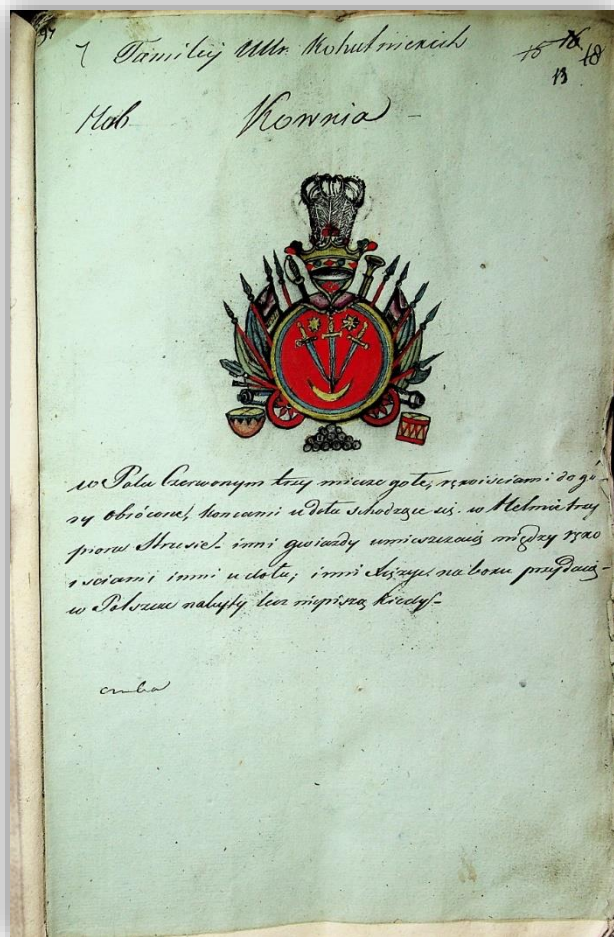 97
7 Familij Kohutnickich 15 16 18
13
Hab Kownia
w Polu Czerwonym trzy miecze gołe, rękoiściami do gó-
ry obrócone, końcami u dołu schodzące się. w Hełmie trzy
piora Strusie. inni gwiazdy umieszczaią między ręko
iściami inni u dołu; inni Xiężyc na boku przydaią-
w Polszcze nabyty lecz niepiszą kiedy-